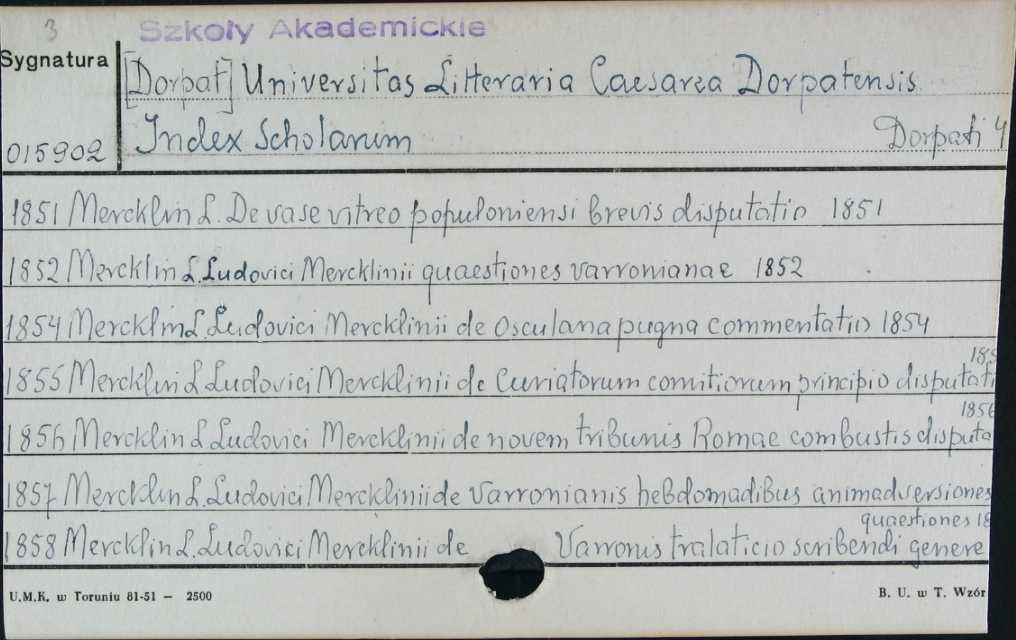 3 Szkoły Akademickie
Sygnatura
[Dorpat] Universitas Litteraria Caesarea Dorpatensis
015902 Index Scholarum Dorpati 4
1851 Mercklin L. De vase vitreo populoniensi brevis disputatio 1851
1852 Mercklin L. Ludovici Mercklinii quaestiones varronianae 1852
1854 Mercklin L. Ludovici Mercklinii de Osculana pugna commentatio 1854
185
1855 Mercklin L. Ludovici Mercklinii de Curiatorum comitiorum principio disputati
1856
1856 Mercklin L. Ludovici Mercklinii de novem tribunis Romae combustis disputa
1857 Mercklin L. Ludovici Mercklinii de Varronianis hebdomadibus animadversiones
quaestiones 18
1858 Mercklin L. Ludovici Mercklinii de Varronis tralaticio scribendi genere
U.M.K. w Toruniu 81-51 — 2500 B. U. w T. Wzór